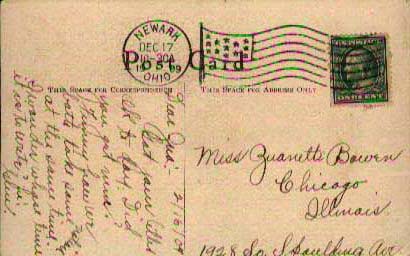 NEWARK
DEC 17
10-30A
1909
OHIO
Post Card
THIS SPACE FOR CORRESPONDENCE
THIS SPACE FOR ADDRESS ONLY
ONE CENT
2/16/09
Dear
your letter
to day. Did
you get mine?
at the same time.
I wonder whose time
Miss Zuanetta Bowen
Chicago
Illinois.
1928 So. Spaulding Ave